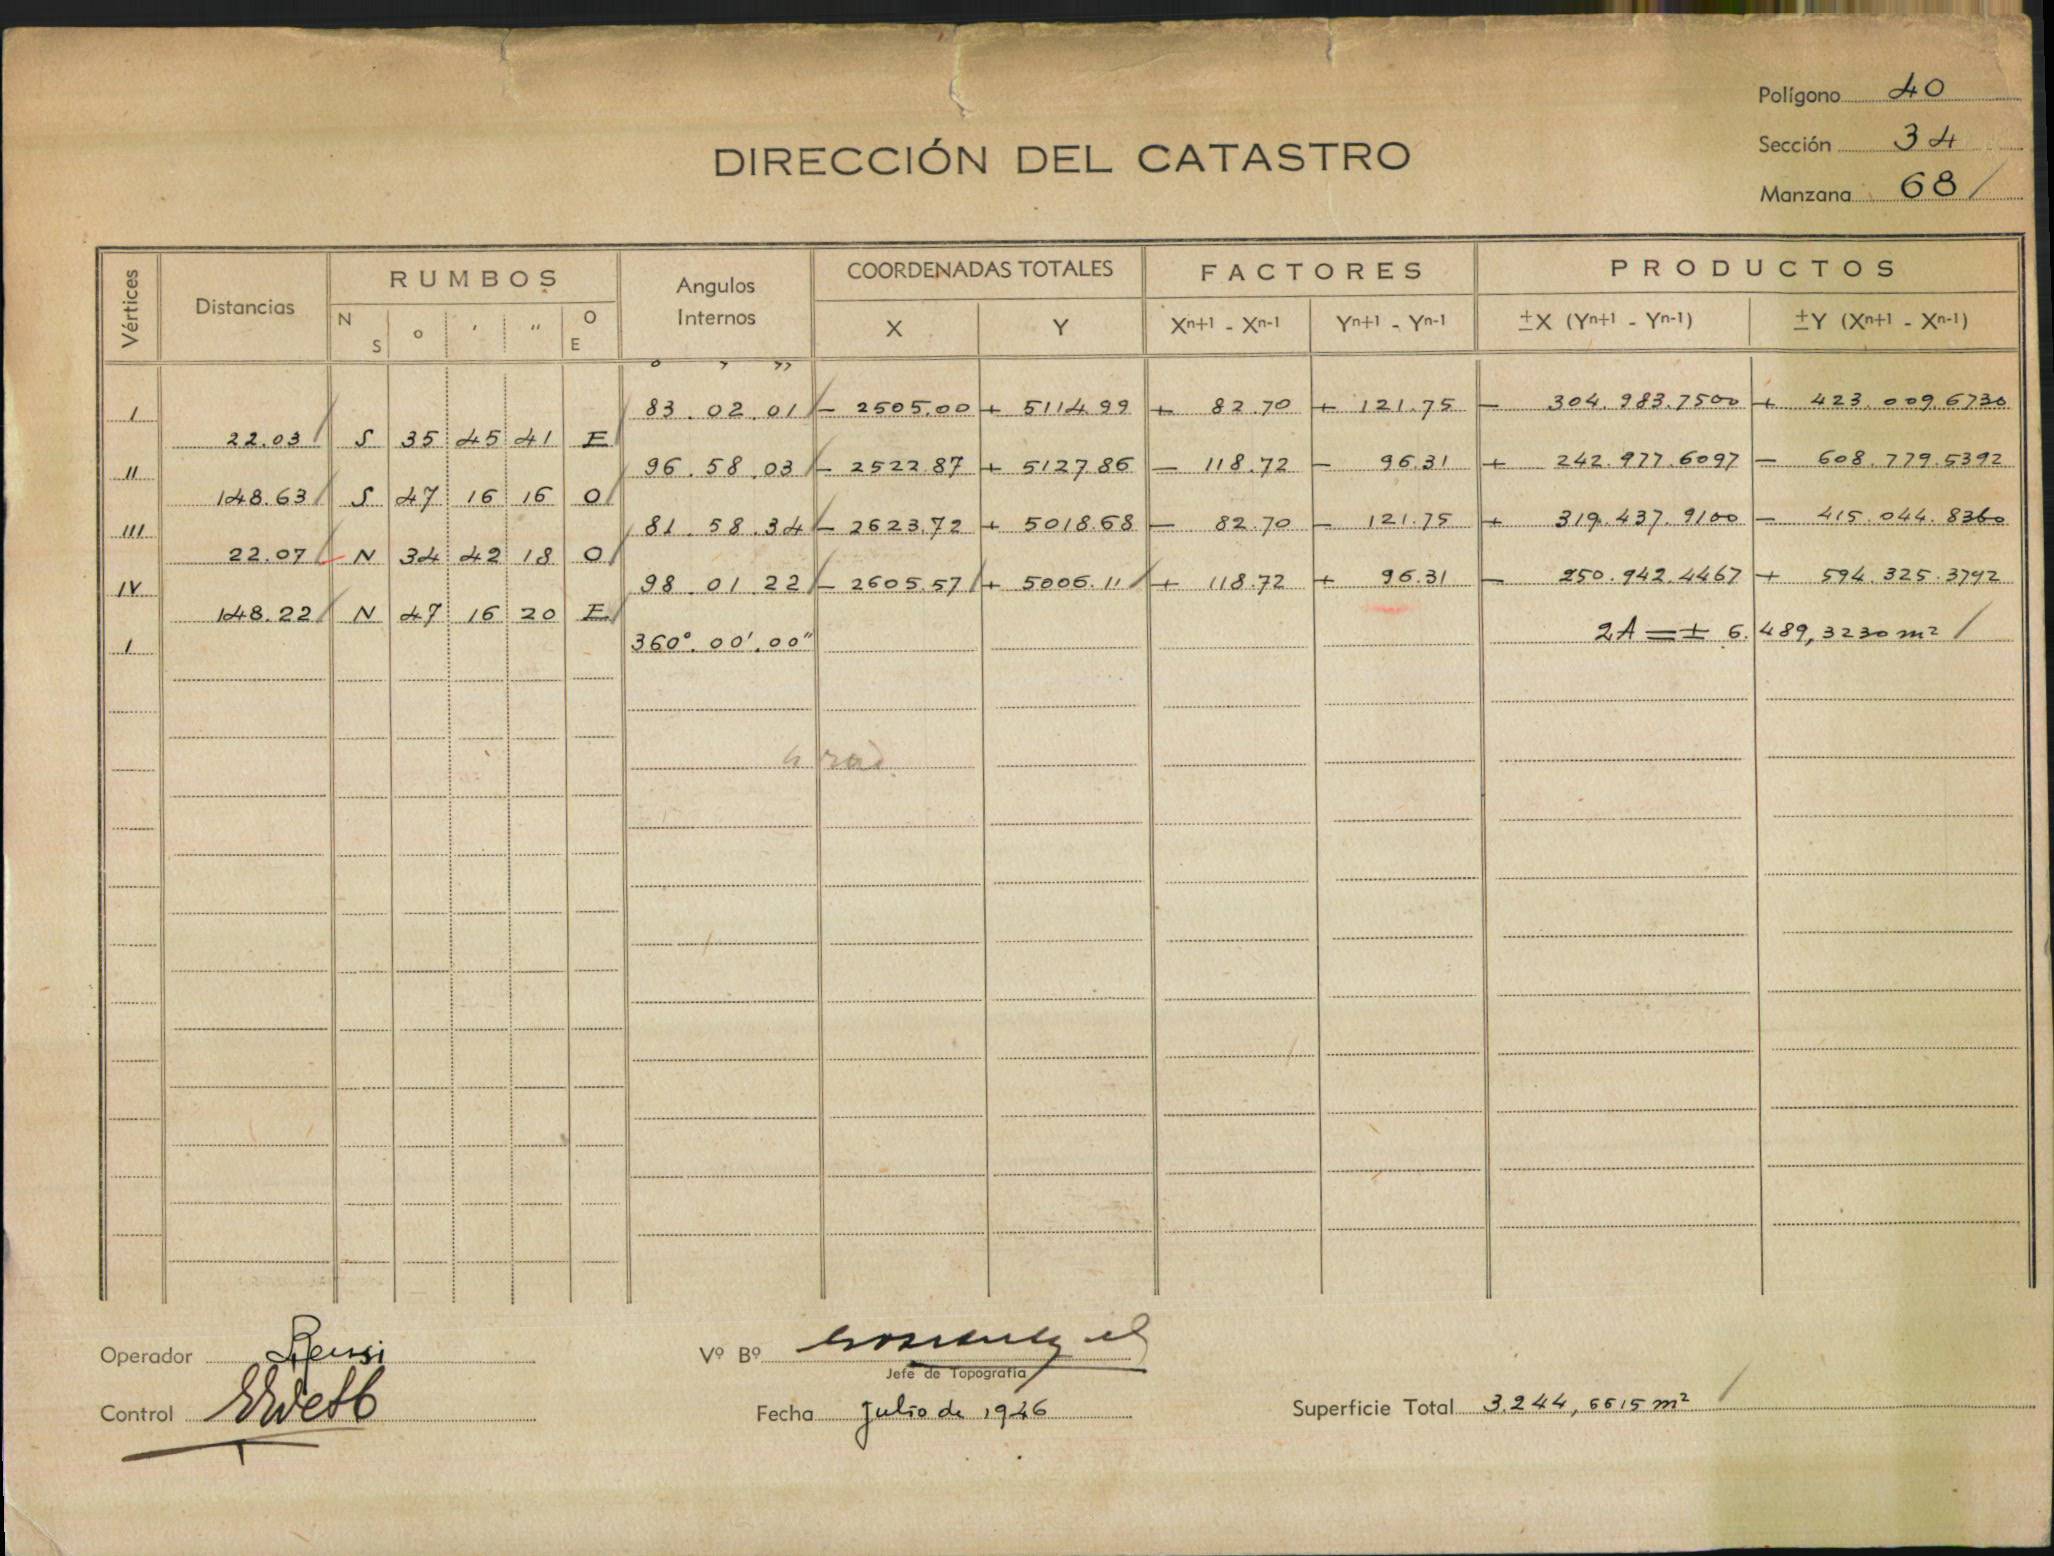 Polígono 40
Sección 34
DIRECCIÓN DEL CATASTRO
Manzana 68 /
Vértices Distancias RUMBOS Angulos Internos COORDENADAS TOTALES FACTORES PRODUCTOS
N S o ' " O E X Y Xn+1 - Xn-1 Yn+1 - Yn-1 ±X (Yn+1 - Yn-1) ±Y (Xn+1 - Xn-1)
o ' "
I 83 . 02 . 01 / - 2505.00 + 5114.99 + 82.70 + 121.75 - 304.983.7500 + 423.009.6730
22.03 / S 35 45 41 E /
II 96 . 58 . 03 / - 2522.87 + 5127.86 - 118.72 - 96.31 + 242.977.6097 - 608.779.5392
148.63 / S 47 16 16 O /
III 81 . 58 . 34 / - 2623.72 + 5018.68 - 82.70 - 121.75 + 319.437.9100 - 415.044.8360
22.07 / N 34 42 18 O /
IV 98 . 01 . 22 / - 2605.57 / + 5006.11 / + 118.72 + 96.31 - 250.942.4467 + 594.325.3792
148.22 / N 47 16 20 E /
I 360°.00'.00" 2A = ± 6.489,3230 m² /
Operador
Vº Bº
Jefe de Topografía
Control
Fecha julio de 1946
Superficie Total 3.244,6615 m² /